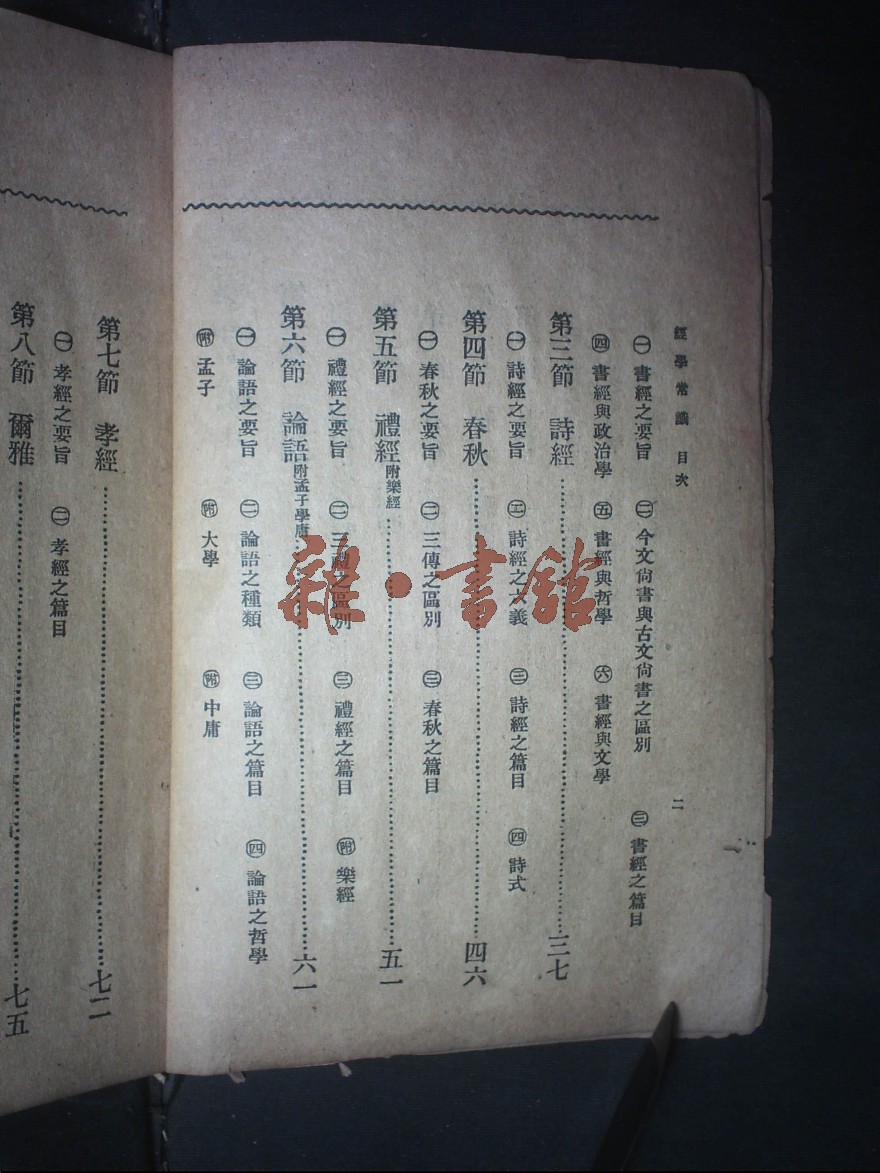 經學常識 目次 二
㊀ 書經之要旨 ㊁ 今文尙書與古文尙書之區別 ㊂ 書經之篇目
㊃ 書經與政治學 ㊄ 書經與哲學 ㊅ 書經與文學
第三節 詩經……三七
㊀ 詩經之要旨 ㊁ 詩經之六義 ㊂ 詩經之篇目 ㊃ 詩式
第四節 春秋……四六
㊀ 春秋之要旨 ㊁ 三傳之區別 ㊂ 春秋之篇目
第五節 禮經附樂經……五一
㊀ 禮經之要旨 ㊁ 三禮之區別 ㊂ 禮經之篇目 附 樂經
第六節 論語附孟子學庸……六一
㊀ 論語之要旨 ㊁ 論語之種類 ㊂ 論語之篇目 ㊃ 論語之哲學
附 孟子 附 大學 附 中庸
第七節 孝經……七二
㊀ 孝經之要旨 ㊁ 孝經之篇目
第八節 爾雅……七五
雜·書館